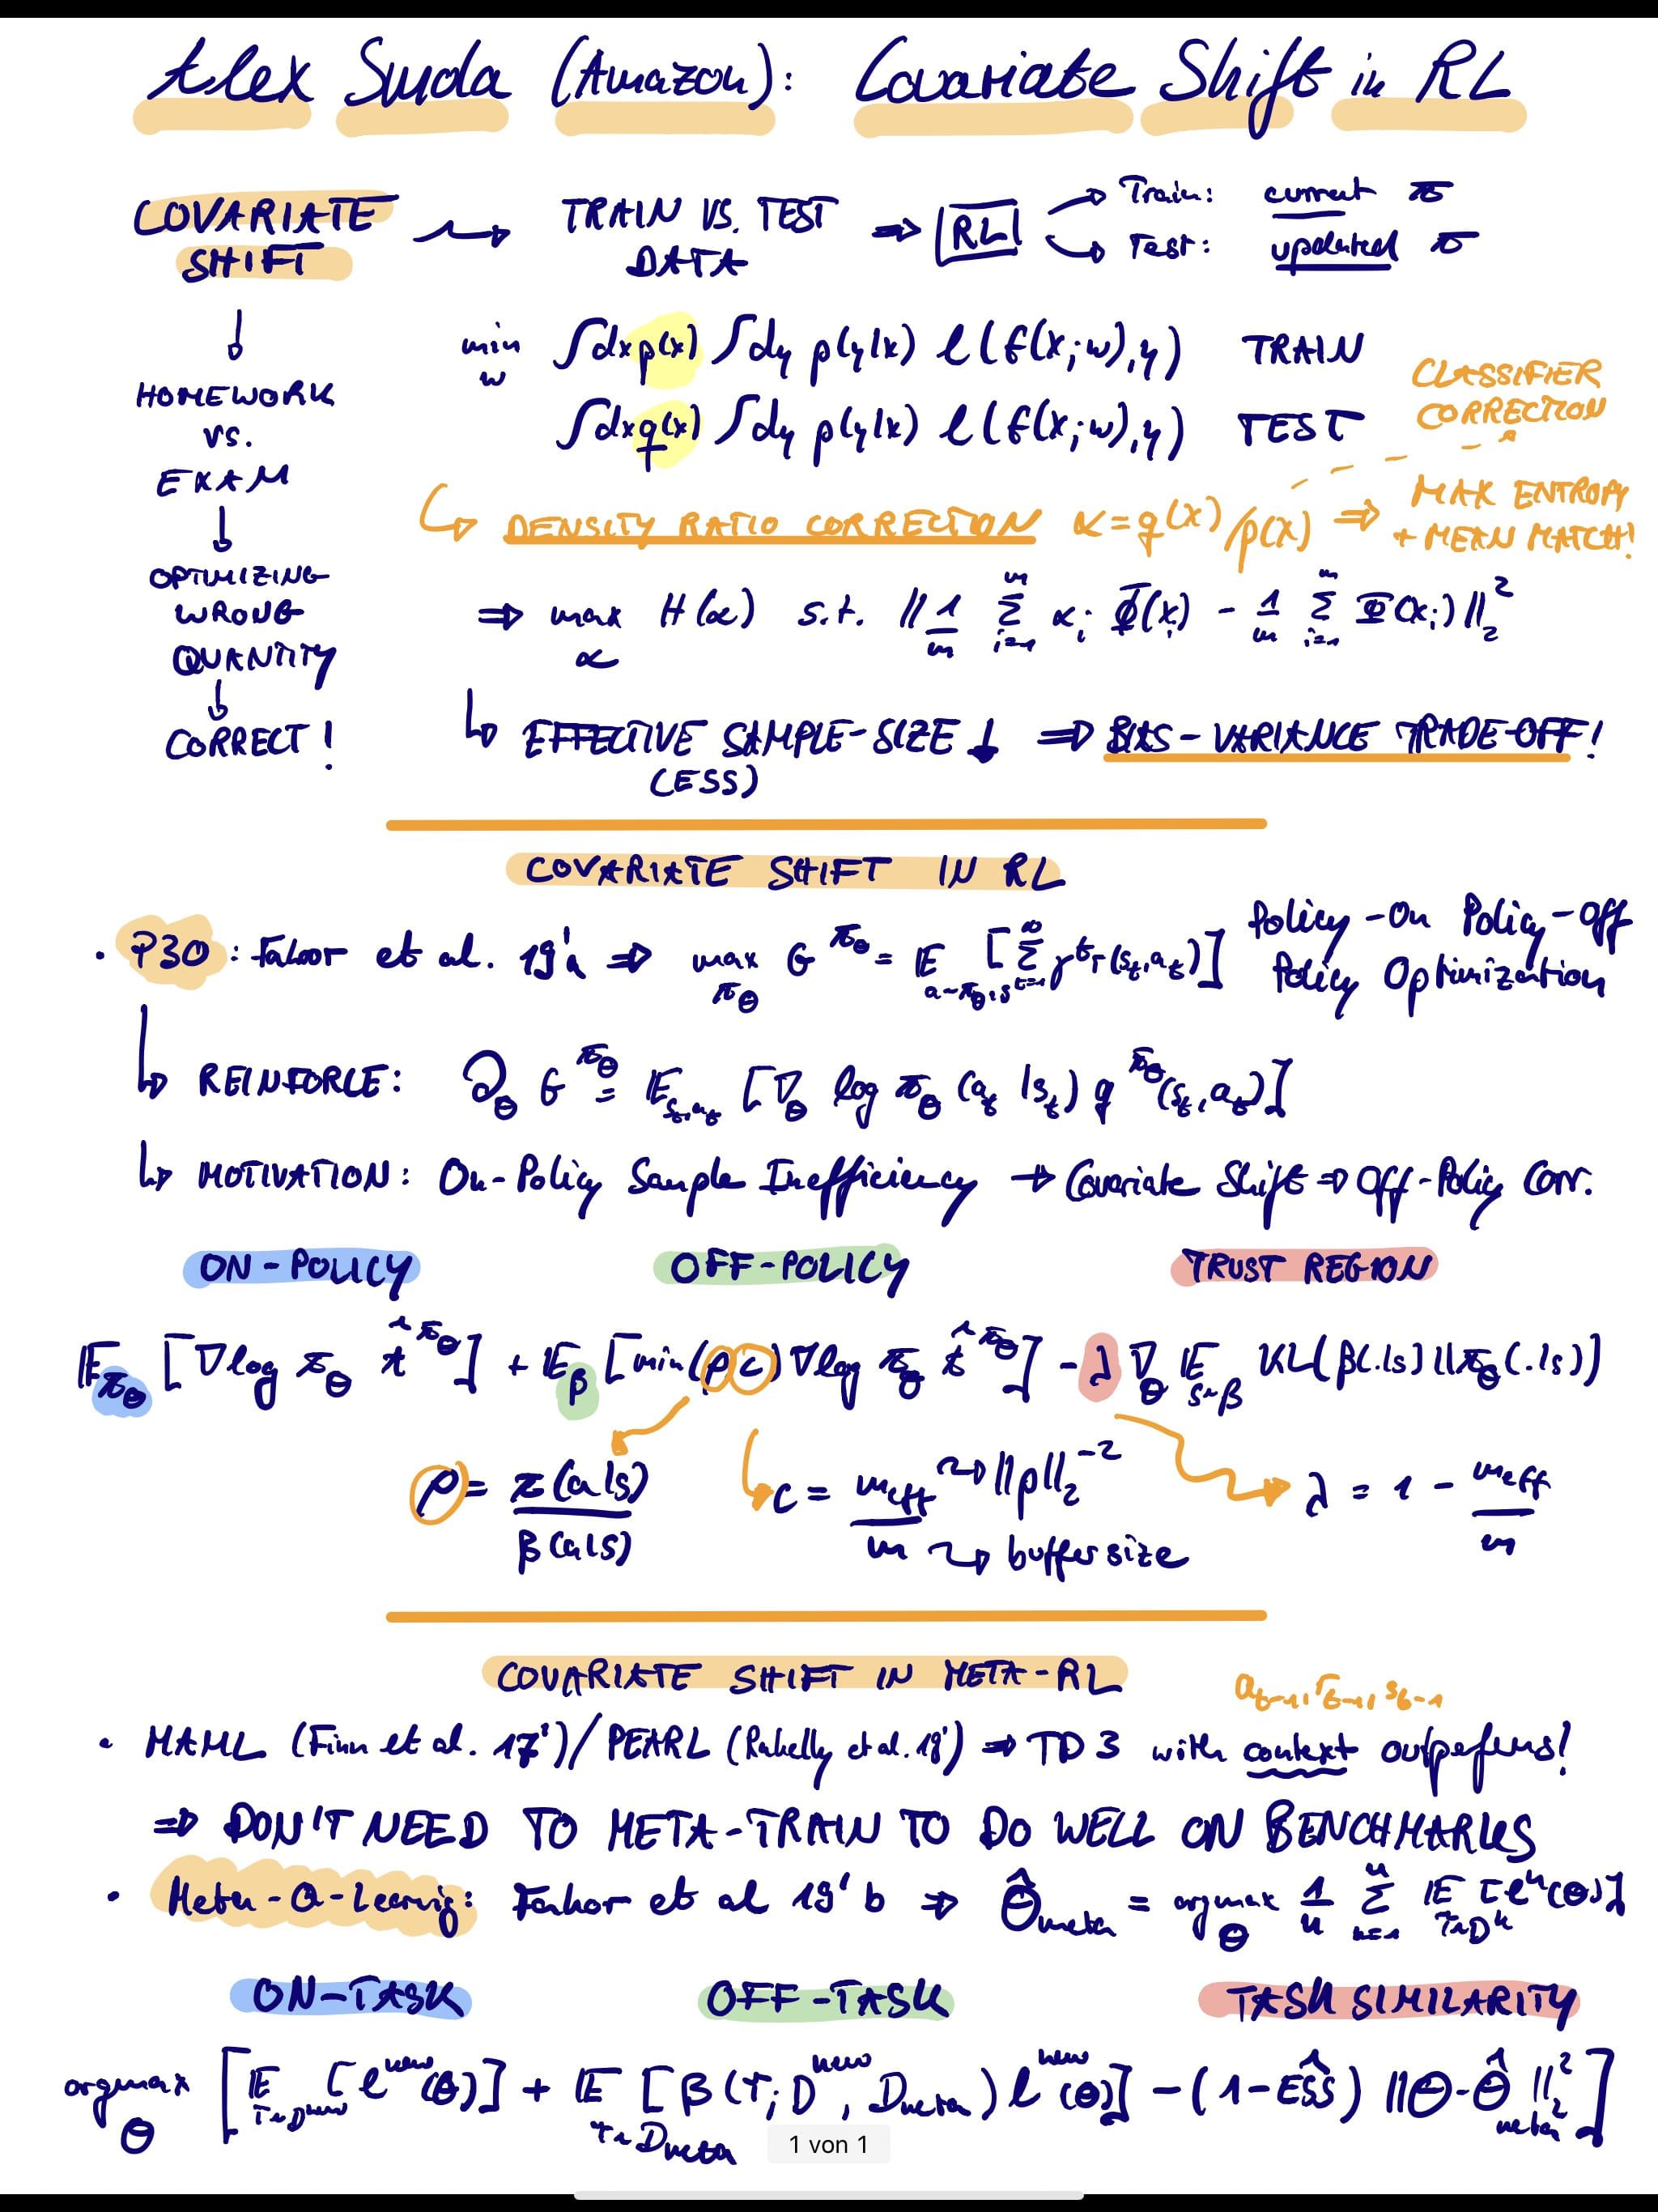 Alex Smola (Amazon): Covariate Shift in RL
COVARIATE SHIFT → TRAIN VS. TEST DATA ⇒ |RL| → Train: current π
→ Test: updated π
↓
HOMEWORK
VS.
EXAM
↓
OPTIMIZING
WRONG
QUANTITY
↓
CORRECT!
min_w ∫dx p(x) ∫dy p(y|x) l(f(x;w),y) TRAIN
∫dx q(x) ∫dy p(y|x) l(f(x;w),y) TEST
CLASSIFIER
CORRECTION
↳ DENSITY RATIO CORRECTION α = q(x)/p(x) ⇒ MAX ENTROPY
+ MEAN MATCH!
⇒ max_α H(α) s.t. ||1/m Σ_{i=1}^m α_i Φ(x_i) - 1/m Σ_{i=1}^m Φ(x_i)||_2^2
↳ EFFECTIVE SAMPLE-SIZE ↓ ⇒ BIAS-VARIANCE TRADE-OFF!
(ESS)
COVARIATE SHIFT IN RL
• P3O: Fakoor et al. 19'a ⇒ max_{π_θ} G^{π_θ} = E_{a~π_θ,s} [Σ_{t=1}^∞ γ^t r(s_t,a_t)] Policy-On Policy-off
Policy Optimization
↳ REINFORCE: ∂_θ G^{π_θ} = E_{s_t,a_t} [∇_θ log π_θ (a_t|s_t) q^{π_θ}(s_t,a_t)]
↳ MOTIVATION: On-Policy Sample Inefficiency → Covariate Shift ⇒ Off-Policy Corr.
ON-POLICY OFF-POLICY TRUST REGION
E_{π_θ} [∇log π_θ Â^{π_θ}] + E_β [min(ρ,c) ∇log π_θ Â^{π_θ}] - λ ∇_θ E_{s~β} KL(β(.|s)||π_θ(.|s))
ρ = π(a|s)/β(a|s) c = m_eff/m λ = 1 - m_eff/m
m_eff → ||ρ||_2^{-2}
m → buffer size
COVARIATE SHIFT IN META-RL
a_{t-1}, r_{t-1}, s_{t-1}
• MAML (Finn et al. 17')/PEARL (Rakelly et al. 19') ⇒ TD3 with context outpefoms!
⇒ DON'T NEED TO META-TRAIN TO DO WELL ON BENCHMARKS
• Meta-Q-Learnig: Fakor et al 19'b ⇒ θ̂_meta = argmax_θ 1/n Σ_{k=1}^n E_{τ~D^k} [l^k(θ)]
ON-TASK OFF-TASK TASK SIMILARITY
argmax_θ [E_{τ~D^new} [l^new(θ)] + E_{τ~D_meta} [β(τ; D^new, D_meta) l^new(θ)] - (1-ÊSS) ||θ-θ̂_meta||_2^2]
1 von 1